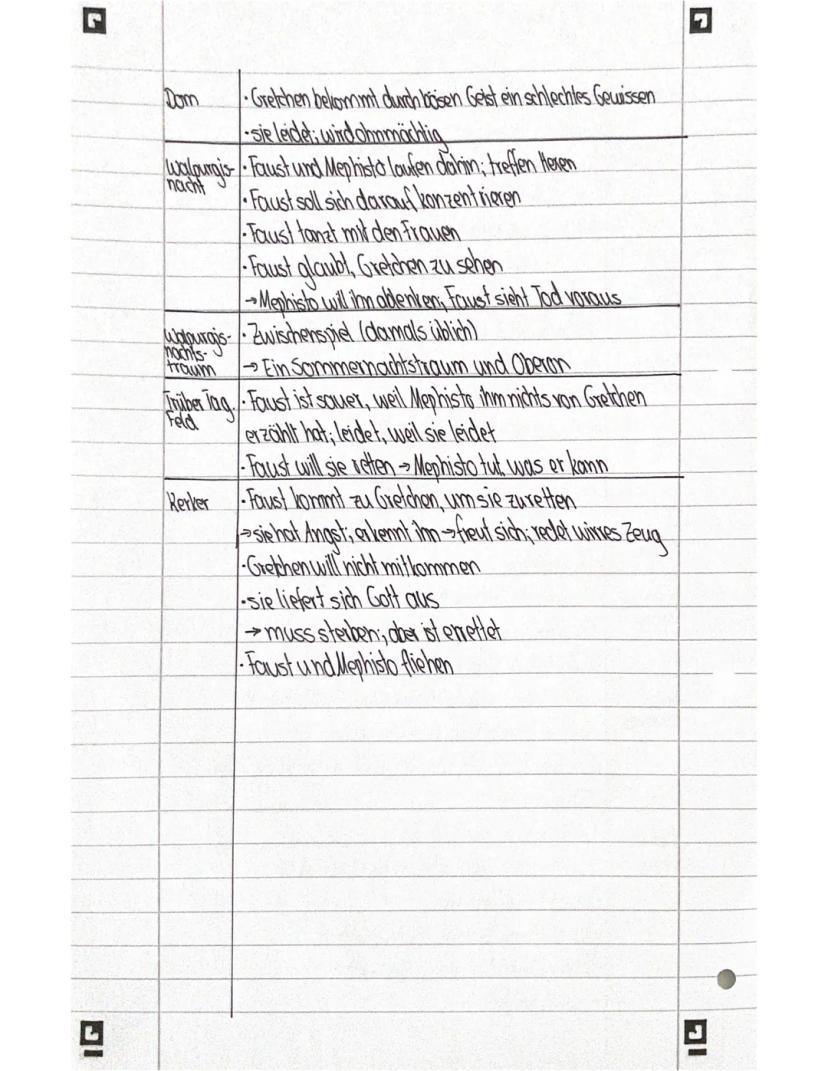 Dom
· Gretchen bekommt durch bösen Geist ein schlechtes Gewissen
· sie leidet; wird ohnmächtig
Walpurgis-
nacht
· Faust und Mephisto laufen dahin; treffen Hexen
· Faust soll sich darauf konzentrieren
· Faust tanzt mit den Frauen
· Faust glaubt, Gretchen zu sehen
→ Mephisto will ihn ablenken; Faust sieht Tod voraus
Walpurgis-
nachts-
traum
· Zwischenspiel (damals üblich)
→ Ein Sommernachtstraum und Oberon
Trüber Tag.
Feld
· Faust ist sauer, weil Mephisto ihm nichts von Gretchen
erzählt hat; leidet, weil sie leidet
· Faust will sie retten → Mephisto tut, was er kann
Kerker
· Faust kommt zu Gretchen, um sie zu retten
→ sie hat Angst; erkennt ihn → freut sich; redet wirres Zeug
· Gretchen will nicht mitkommen
· sie liefert sich Gott aus
→ muss sterben; aber ist errettet
· Faust und Mephisto fliehen